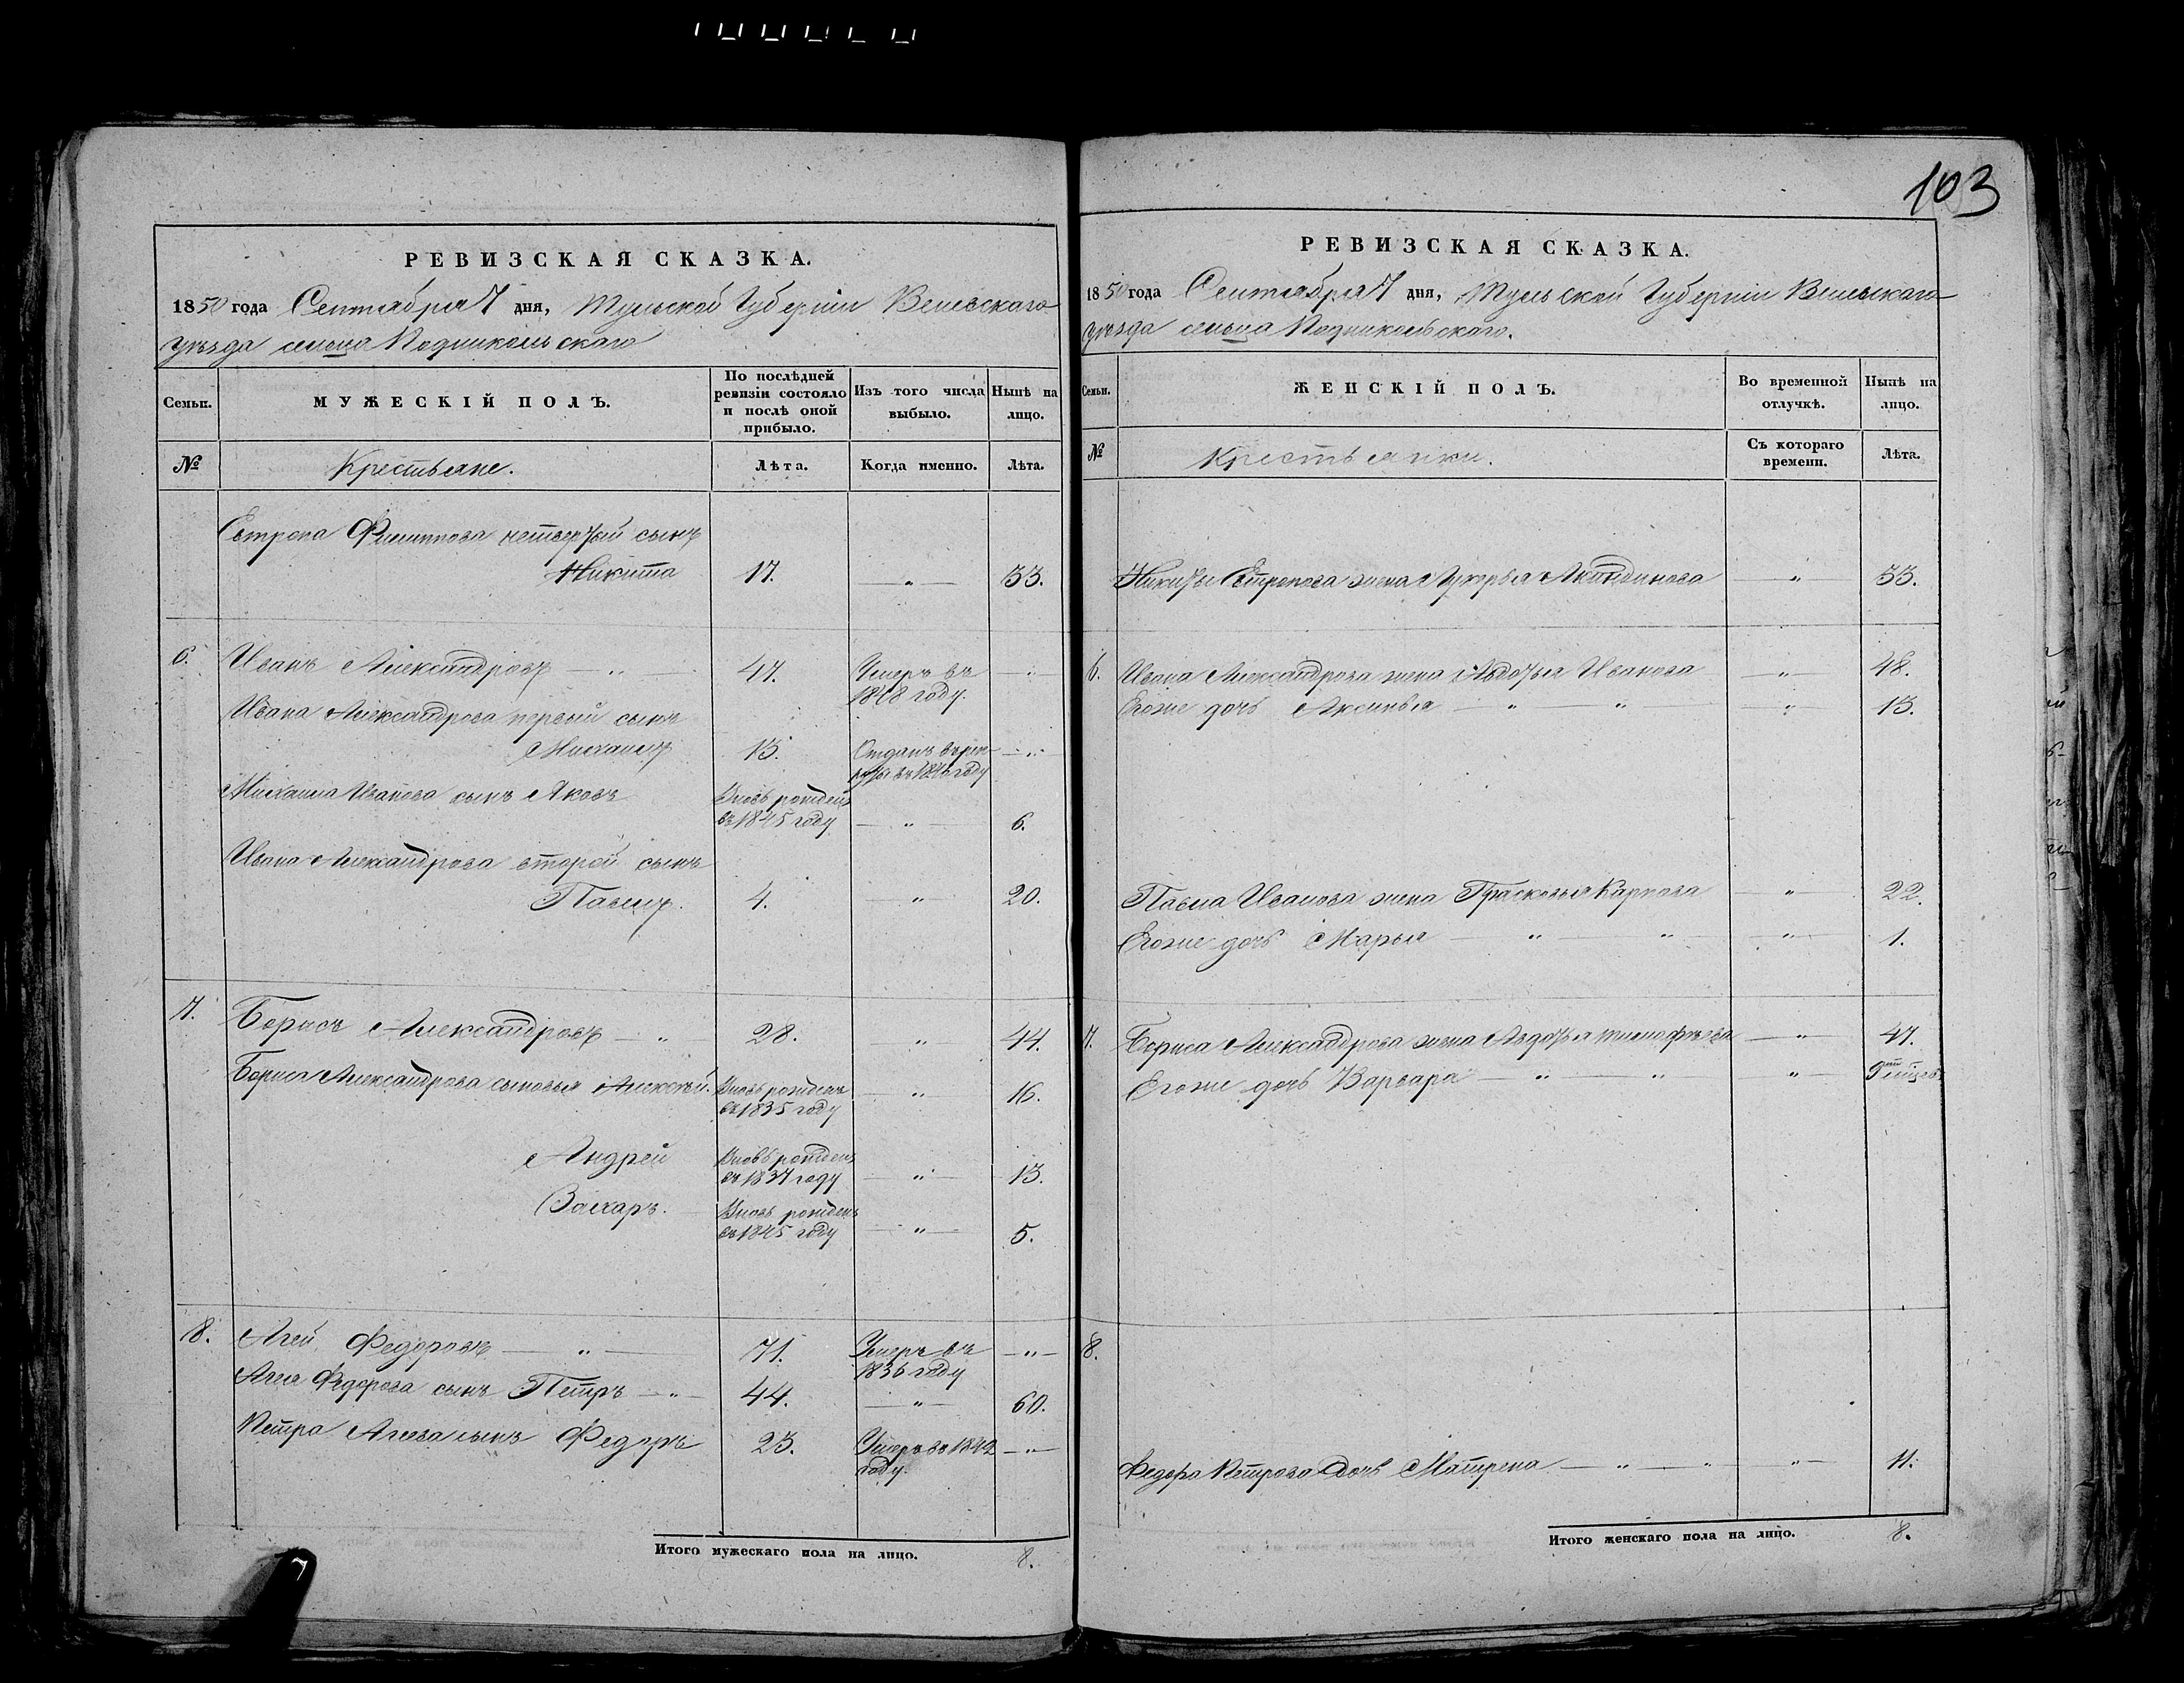 103
РЕВИЗСКАЯ СКАЗКА.
1850 года Сентября 7 дня, Тульской Губерніи Веневскаго
уѣзда сельца Подникольскаго
Семьи.
МУЖЕСКІЙ ПОЛЪ.
По послѣдней ревизіи состояло и послѣ оной прибыло.
Изъ того числа выбыло.
Нынѣ на лицо.
№
Крестьяне.
Лѣта.
Когда именно.
Лѣта.
Евтропа Филиппова четвертый сынъ
Никита 17. — " — 33.
6. Иванъ Александровъ — " — 47. Умеръ въ — " —
1848 году.
Ивана Александрова первый сынъ
Михаилъ 15. Отданъ въ рек- — " —
руты въ 1846 году
Михаила Иванова сынъ Яковъ Вновь рожденъ
въ 1845 году — " — 6.
Ивана Александрова второй сынъ
Павелъ. 4. — " — 20.
7. Борисъ Александровъ — " — 28. " 44.
Бориса Александрова сыновья Алексѣй. Вновь рожденъ
въ 1835 году — " — 16.
Андрей Вновь рожденъ
въ 1837 году — " — 13.
Захаръ. Вновь рожденъ
въ 1845 году — " — 5.
8. Агей Федоровъ — " — 71. Умеръ въ — " —
1836 году
Агея Федорова сынъ Петръ — " — 44. — " — 60.
Петра Агеева сынъ Федоръ 23. Умеръ въ 1842 — " —
году.
Итого мужескаго пола на лицо. 8.
РЕВИЗСКАЯ СКАЗКА.
1850 года Сентября 7 дня, Тульской Губерніи Веневскаго
уѣзда сельца Подникольскаго.
Семьи.
ЖЕНСКІЙ ПОЛЪ.
Во временной отлучкѣ.
Нынѣ на лицо.
№
Крестьянки.
Съ котораго времени.
Лѣта.
Никиты Евтропова жена Лукерья Акиндинова — " — 33.
6. Ивана Александрова жена Авдотья Иванова — " — 48.
Егоже дочь Аксинья — " — " " 13.
Павла Иванова жена Прасковья Карпова — " — 22.
Егоже дочь Марья — " — " — " — 1.
7. Бориса Александрова жена Авдотья — " — 47.
Егоже дочь Варвара — " — " — " —
8.
Федора Петрова дочь Матрена — " — " " — 11.
Итого женскаго пола на лицо. 8.